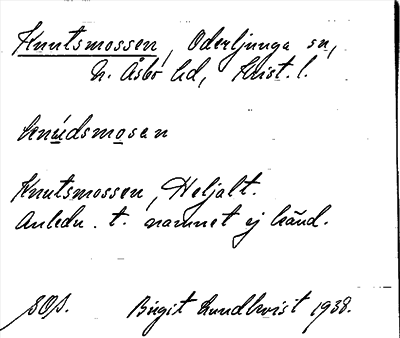 Knutsmossen, Oderljunga sn,
N. Åsbo hd, Krist. l.
knu̱dsmo̱san
Knutsmossen, Heljalt.
Anledn. t. namnet ej känd.
Birgit Lundkvist 1938.